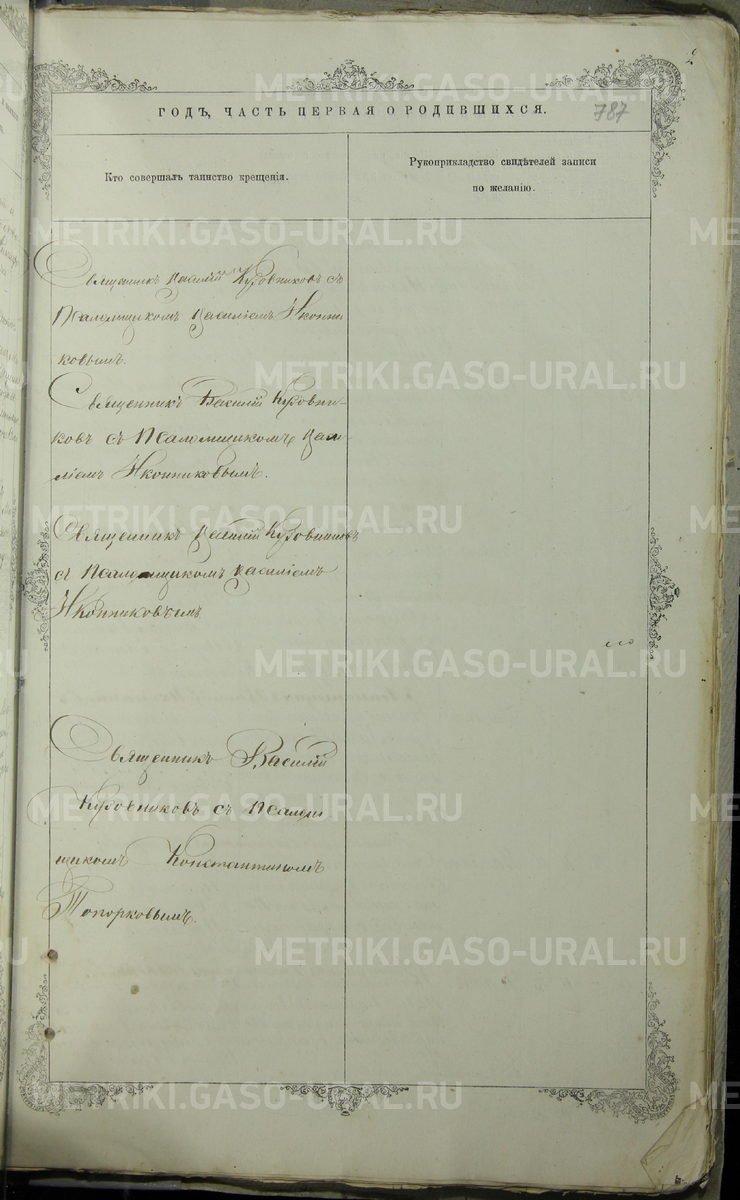 ГОДЪ, ЧАСТЬ ПЕРВАЯ О РОДИВШИХСЯ.
787
Кто совершалъ таинство крещенія.
Рукоприкладство свидѣтелей записи
по желанію.
Священникъ Василій Кировниковъ съ
Псаломщикомъ Василіемъ Иконни
ковымъ.
Священникъ Василій Кировни-
ковъ съ Псаломщикомъ Васи
ліемъ Иконниковымъ.
Священникъ Василій Кировниковъ
съ Псаломщикомъ Василіемъ
Иконниковымъ.
Священникъ Василій
Кировниковъ съ Псалом
щикомъ Константиномъ
Топорковымъ.
METRIKI.GASO-URAL.RU